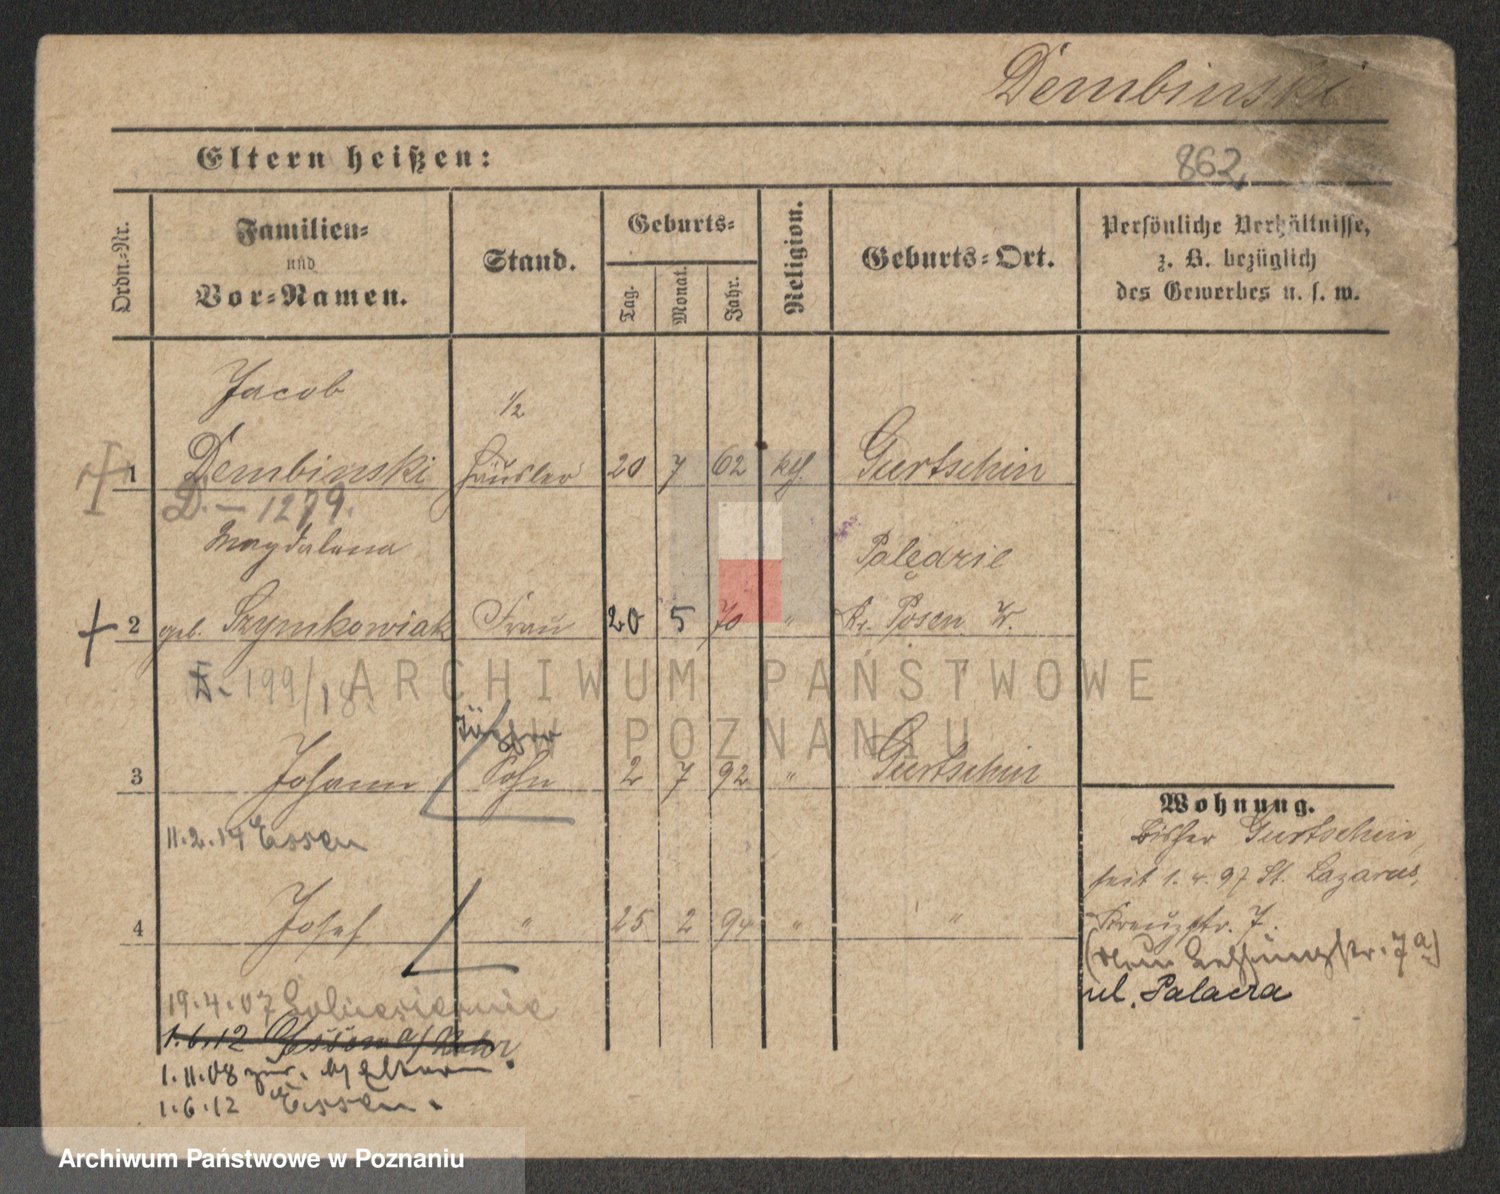 Dembinski
Eltern heißen:
862
Ordn.-Nr.
Familien-
und
Vor-Namen.
Stand.
Geburts-
Tag.
Monat.
Jahr.
Religion.
Geburts-Ort.
Persönliche Verhältnisse,
z. B. bezüglich
des Gewerbes u. s. w.
Jacob
1/2
1 Dembinski Häusler 20 7 62 kth. Gurtschin
D. - 1279.
Magdalena Palędzie
2 geb. Szymkowiak Frau 20 5 70 " Kr. Posen W.
D. 199/18.
ARCHIWUM PAŃSTWOWE
W POZNANIU
3 Johann Sohn 2 7 92 " Gurtschin
11.2.14 Essen
4 Josef " 25 2 94 " "
19.4.07
1.6.12 Essen a/Ruhr
1.11.08 zur. Eltern.
1.6.12 Essen.
Wohnung.
bisher Gurtschin,
seit 1. 4. 97 St. Lazarus,
Kreuzstr. 7.
7a)
ul. Palacza
Archiwum Państwowe w Poznaniu